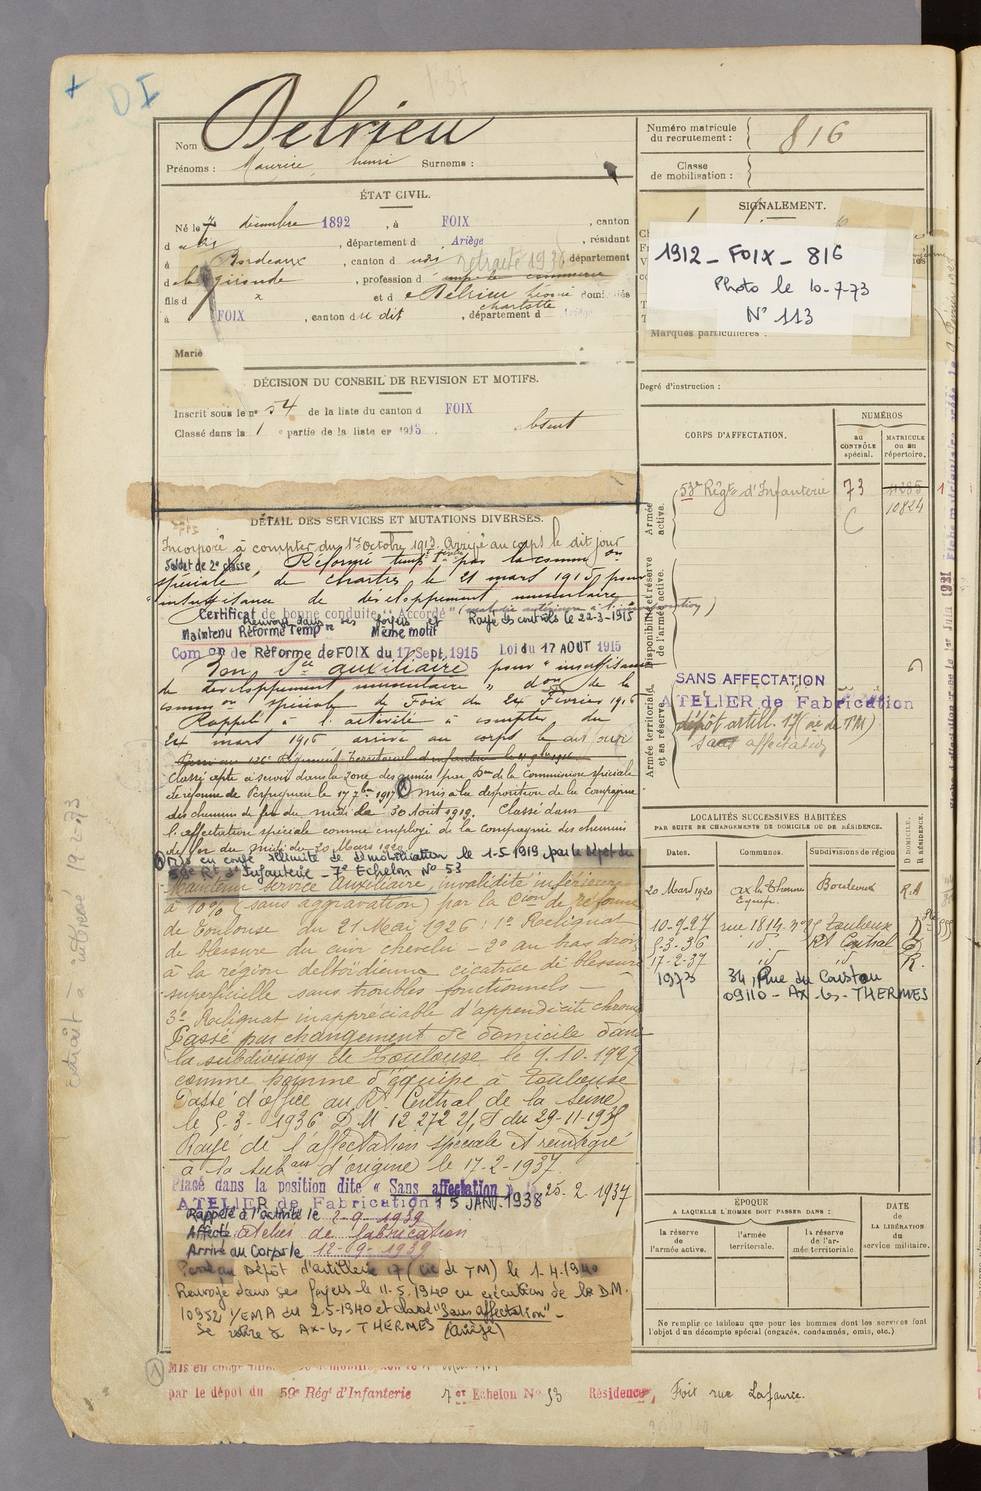 D I
Nom Delrieu
Prénoms : Maurice, henri Surnoms :
ÉTAT CIVIL.
Né le 7 décembre 1892, à FOIX, canton
d u dis, département d Ariège, résidant
à Bordeaux, canton d udis retraité 1936 département
d e la gironde, profession d empé de commerce
fils d x et d e Delrieu Léonie Charlotte domiciliés
à FOIX, canton du dit, département d Ariège
Marié
DÉCISION DU CONSEIL DE REVISION ET MOTIFS.
Inscrit sous le n° 54 de la liste du canton d FOIX
Classé dans la 1 e partie de la liste en 1913 absent
DÉTAIL DES SERVICES ET MUTATIONS DIVERSES.
Incorporé à compter du 1er Octobre 1913. Arrivé au corps le dit jour
Soldat de 2e classe. Réformé tempre par la comm on
spéciale de Chartres le 21 mars 1915 pour
"insuffisance de développement musculaire
Certificat de bonne conduite "Accordé" (maladie antérieure à l'incorporation)
Renvoyé dans ses foyers et Rayé des contrôles le 22-3-1915
Maintenu Réformé Tempre Même motif
Com on de Réforme de FOIX du 17 Sept. 1915 Loi du 17 AOUT 1915
Bon Sce auxiliaire pour "insuffisance
de développement musculaire" d on de la
comm on spéciale de Foix du 24 Février 1916
Rappelé à l'activité à compter du
24 mars 1916 arrivé au corps le dit jour
Classé apte à servir dans la zone des armées par Don de la Commission spéciale
de réforme de Perpignan le 17 7bre 1917 (A) mis à la disposition de la Compagnie
des chemins de fer du midi le 30 Août 1919. Classé dans
l'affectation spéciale comme employé de la compagnie des chemins
de fer du midi du 20 Mars 1920
(A) Mis en congé illimité de démobilisation le 1-5-1919 par le Dépôt du
59e Rt d'Infanterie - 7e Echelon N° 53
Maintenu service Auxiliaire, invalidité inférieure
à 10% (sans aggravation) par la Cion de réforme
de Toulouse du 21 Mai 1926 : 1° Reliquat
de blessure du cuir chevelu - 2° au bras droit
à la région deltoïdienne cicatrice de blessure
superficielle sans troubles fonctionnels -
3° Reliquat inappréciable d'appendicite chronique
Passé par changement de domicile dans
la subdivision de Toulouse le 9.10.1927
comme homme d'équipe à Toulouse
Passé d'office au Rt Central de la Seine
le 5-3-1936 D.M 12 272 2/I du 29-11-1935
Rayé de l'affectation spéciale et réintégré
à la Subon d'origine le 17-2-1937.
Placé dans la position dite « Sans affectation » le 25.2.1937
ATELIER de Fabrication 15 JANV. 1938
Rappelé à l'activité le 2-9-1939
Affecté atelier de fabrication
Arrivé au Corps le 12-09-1939
Passé au Dépôt d'artillerie 17 (cie de TM) le 1-4-1940
Renvoyé dans ses foyers le 11.5.1940 en exécution de la D.M.
10952 1/EMA du 2.5-1940 et classé "Sans affectation" -
Se retire à AX-les-THERMES (Ariège)
par le dépôt du 59e Régt d'Infanterie 7er Echelon N° 53 Résidence, Foix rue Lafaurie.
Numéro matricule du recrutement : 816
Classe de mobilisation :
SIGNALEMENT.
1912 - FOIX - 816
Photo le 10-7-73
N° 113
Marques particulières :
Degré d'instruction :
CORPS D'AFFECTATION.
NUMÉROS
au CONTRÔLE spécial.
MATRICULE ou au répertoire.
Armée active.
53e Régt d'Infanterie 73 11285
10824
Disponibilité et réserve de l'armée active.
Armée territoriale et sa réserve.
SANS AFFECTATION
ATELIER de Fabrication
dépôt artill. 17 (cie de TM)
sans affectation
LOCALITÉS SUCCESSIVES HABITÉES
PAR SUITE DE CHANGEMENTS DE DOMICILE OU DE RÉSIDENCE.
Dates. Communes. Subdivisions de région D DOMICILE. R RÉSIDENCE.
20 Mars 1920 Ax les Thermes Bordeaux R.A
10-9-27 Toulouse D
5-3-36 id. Rt Central D
17-2-37 id id R.
1973 34, Rue du Coustou
09110 - AX-les-THERMES
ÉPOQUE
A LAQUELLE L'HOMME DOIT PASSER DANS :
la réserve de l'armée active.
l'armée territoriale.
la réserve de l'armée territoriale.
DATE de LA LIBÉRATION du service militaire.
Ne remplir ce tableau que pour les hommes dont les services font
l'objet d'un décompte spécial (engagés, condamnés, omis, etc.)